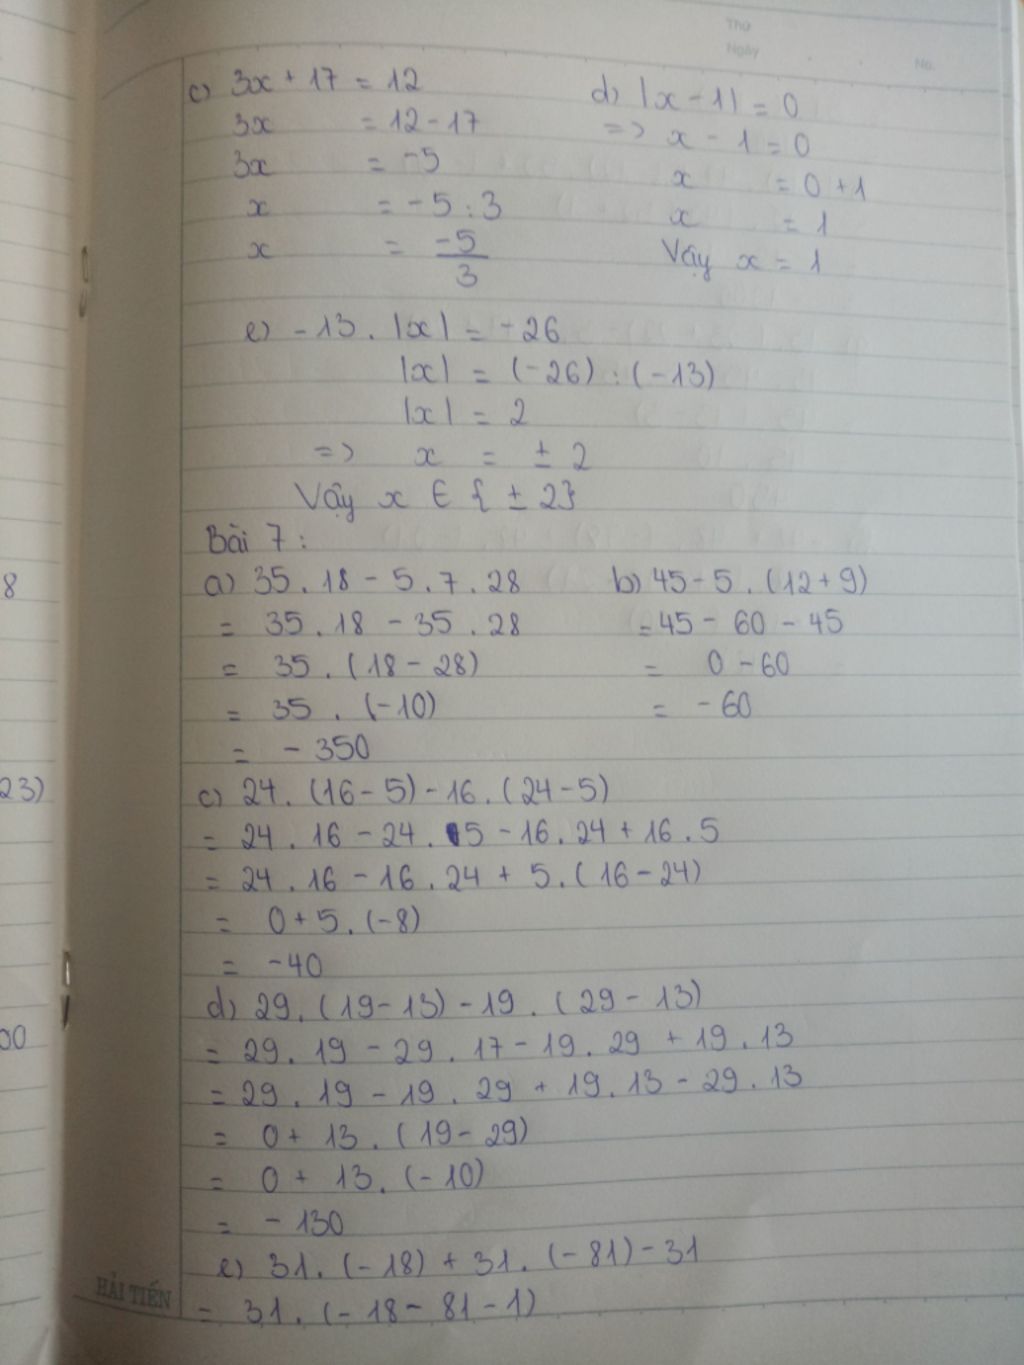 Thứ
Ngày
No.
c) 3x + 17 = 12
3x = 12 - 17
3x = -5
x = -5 : 3
x = -5/3
d) |x - 1| = 0
=> x - 1 = 0
x = 0 + 1
x = 1
Vậy x = 1
e) -13 . |x| = -26
|x| = (-26) : (-13)
|x| = 2
=> x = ± 2
Vậy x ∈ { ± 2}
Bài 7 :
a) 35 . 18 - 5 . 7 . 28
= 35 . 18 - 35 . 28
= 35 . (18 - 28)
= 35 . (-10)
= - 350
b) 45 - 5 . (12 + 9)
= 45 - 60 - 45
= 0 - 60
= - 60
c) 24 . (16 - 5) - 16 . (24 - 5)
= 24 . 16 - 24 . 5 - 16 . 24 + 16 . 5
= 24 . 16 - 16 . 24 + 5 . (16 - 24)
= 0 + 5 . (-8)
= -40
d) 29 . (19 - 13) - 19 . (29 - 13)
= 29 . 19 - 29 . 17 - 19 . 29 + 19 . 13
= 29 . 19 - 19 . 29 + 19 . 13 - 29 . 13
= 0 + 13 . (19 - 29)
= 0 + 13 . (-10)
= - 130
e) 31 . (-18) + 31 . (-81) - 31
= 31 . (-18 - 81 - 1)
8
23)
00
HẢI TIẾN